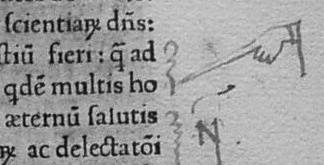 ſcientiaꝝ dñs:
ſtiū fieri: q̃ ad
qdẽ multis ho
æternũ ſalutis
ꝝ ac delectatõi
N